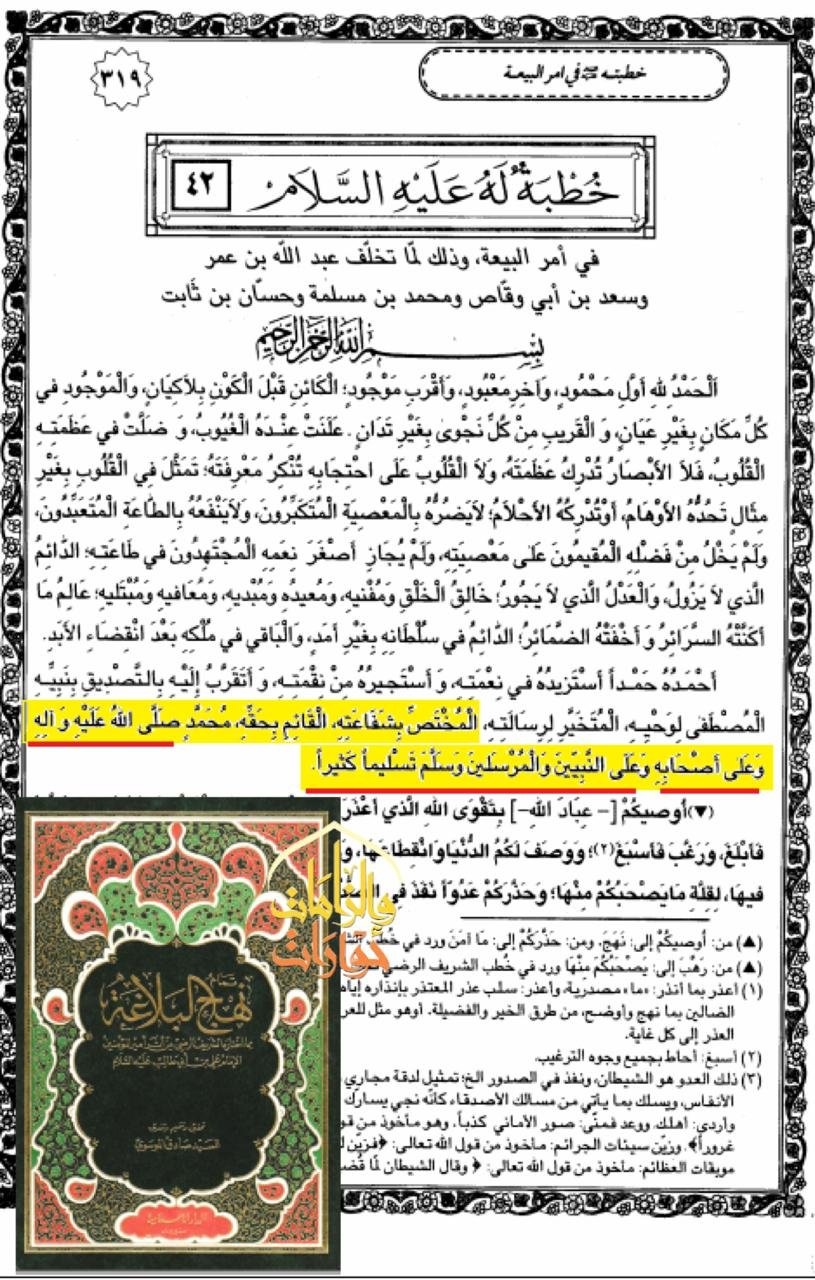 خطبته في امر البيعة
٣١٩
خُطْبَةٌ لَهُ عَلَيْهِ السَّلَام
٤٢
في أمر البيعة، وذلك لمّا تخلّف عبد اللّه بن عمر
وسعد بن أبي وقّاص ومحمد بن مسلمة وحسّان بن ثابت
بِسْمِ اللهِ الرَّحْمٰنِ الرَّحِيمِ
اَلْحَمْدُ للهِ أَوَّلِ مَحْمُودٍ، وَآخِرِ مَعْبُودٍ، وَأَقْرَبِ مَوْجُودٍ؛ الْكَائِنِ قَبْلَ الْكَوْنِ بِلاَكِيَانٍ، وَالْمَوْجُودِ في
كُلِّ مَكَانٍ بِغَيْرِ عِيَانٍ، وَ الْقَرِيبِ مِنْ كُلِّ نَجْوىٰ بِغَيْرِ تَدَانٍ. عَلَنَتْ عِنْدَهُ الْغُيُوبُ، وَ ضَلَّتْ في عَظَمَتِهِ
الْقُلُوبُ، فَلاَ الأَبْصَارُ تُدْرِكُ عَظَمَتَهُ، وَلاَ الْقُلُوبُ عَلَى احْتِجَابِهِ تُنْكِرُ مَعْرِفَتَهُ؛ تَمَثَّلَ في الْقُلُوبِ بِغَيْرِ
مِثَالٍ تَحُدُّهُ الأَوْهَامُ، أَوْتُدْرِكُهُ الأَحْلاَمُ؛ لاَيَضُرُّهُ بِالْمَعْصِيَةِ الْمُتَكَبِّرُونَ، وَلاَيَنْفَعُهُ بِالطَّاعَةِ الْمُتَعَبِّدُونَ،
وَلَمْ يَخْلُ مِنْ فَضْلِهِ الْمُقِيمُونَ عَلىٰ مَعْصِيَتِهِ، وَلَمْ يُجَازِ أَصْغَرَ نِعَمِهِ الْمُجْتَهِدُونَ في طَاعَتِهِ؛ الدَّائِمُ
الَّذي لاَ يَزُولُ، وَالْعَدْلُ الَّذي لاَ يَجُورُ؛ خَالِقُ الْخَلْقِ وَمُفْنيهِ، وَمُعيدُهُ وَمُبْديهِ، وَمُعَافيهِ وَمُبْتَليهِ؛ عَالِمُ مَا
أَكَنَّتْهُ السَّرَائِرُ وَ أَخْفَتْهُ الضَّمَائِرُ؛ الدَّائِمُ في سُلْطَانِهِ بِغَيْرِ أَمَدٍ، وَالْبَاقي في مُلْكِهِ بَعْدَ انْقِضَاءِ الأَبَدِ.
أَحْمَدُهُ حَمْداً أَسْتَزيدُهُ في نِعْمَتِهِ، وَ أَسْتَجيرُهُ مِنْ نِقْمَتِهِ، وَ أَتَقَرَّبُ إِلَيْهِ بِالتَّصْديقِ بِنَبِيِّهِ
الْمُصْطَفىٰ لِوَحْيِهِ، الْمُتَخَيَّرِ لِرِسَالَتِهِ، الْمُخْتَصِّ بِشَفَاعَتِهِ، الْقَائِمِ بِحَقِّهِ، مُحَمَّدٍ صَلَّى اللهُ عَلَيْهِ وَ آلِهِ
وَعَلىٰ أَصْحَابِهِ وَعَلَى النَّبِيّينَ وَالْمُرْسَلينَ وَسَلَّمَ تَسْليماً كَثيراً.
(▼) أُوصيكُمْ [- عِبَادَ اللهِ -] بِتَقْوَى اللهِ الَّذي أَعْذَرَ
فَأَبْلَغَ، وَرَغَّبَ فَأَسْبَغَ(٢)؛ وَوَصَفَ لَكُمُ الدُّنْيَا وَانْقِطَاعَهَا،
فيهَا، لِقِلَّةِ مَا يَصْحَبُكُمْ مِنْهَا؛ وَحَذَّرَكُمْ عَدُوّاً نَفَذَ فِي
(▲) من: أُوصيكُمْ إلى: نَهَجَ. ومن: حَذَّرَكُمْ إلى: مَا أَمَّنَ ورد في خُطب
(▲) من: رَهَّبَ إلى: يَصْحَبُكُمْ مِنْهَا ورد في خُطب الشريف الرضي
(١) أعذر بما أنذر: «ما» مصدرية، وأعذر: سلب عذر المعتذر بإنذاره إياه
الضالين بما نهج وأوضح، من طرق الخير والفضيلة. أو هو مثل
العذر إلى كل غاية.
(٢) أسبغ: أحاط بجميع وجوه الترغيب.
(٣) ذلك العدو هو الشيطان، ونفذ في الصدور الخ؛ تمثيل لدقة مجاري
الأنفاس، ويسلك بما يأتي من مسالك الأصدقاء كأنه نجي يسارك
وأردى: أهلك. ووعد فمنّى: صور الأماني كذباً. وهو مأخوذ من
غروراً﴾. وزيّن سيئات الجرائم: مأخوذ من قول الله تعالى: ﴿فزيّن
موبقات العظائم: مأخوذ من قول الله تعالى: ﴿ وقال الشيطان لمّا
حوارات
والزامات
تمام
نهج البلاغة
الإمام علي بن أبي طالب عليه السلام
السيد صادق الموسوي